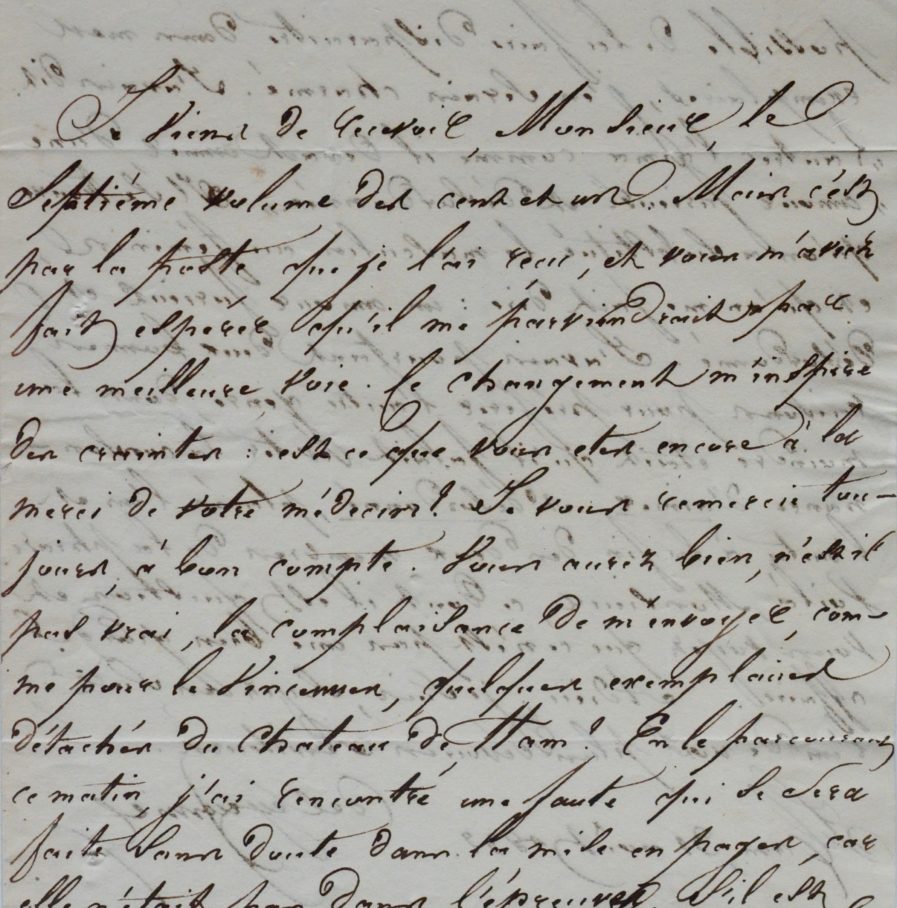 Je viens de recevoir, Monsieur, le
Septiéme volume des cent et un. Mais c'est
par la poste que je l'ai recu, et vous m'aviez
fait espérer qu'il me parviendrait par
une meilleure voie. Ce changement m'inspire
des craintes : est ce que vous etes encore à la
merci de votre médecin? Je vous remercie tou-
jours, à bon compte. Vous aurez bien, n'est il
pas vrai, la complaisance de m'envoyer, com-
me pour le Vincennes, quelques exemplaires
détachés du Chateau de Ham? En le parcourant
ce matin, j'ai rencontré une faute qui se sera
faite sans doute dans la mise en pages, car
elle n'était pas dans l'épreuve. S'il est